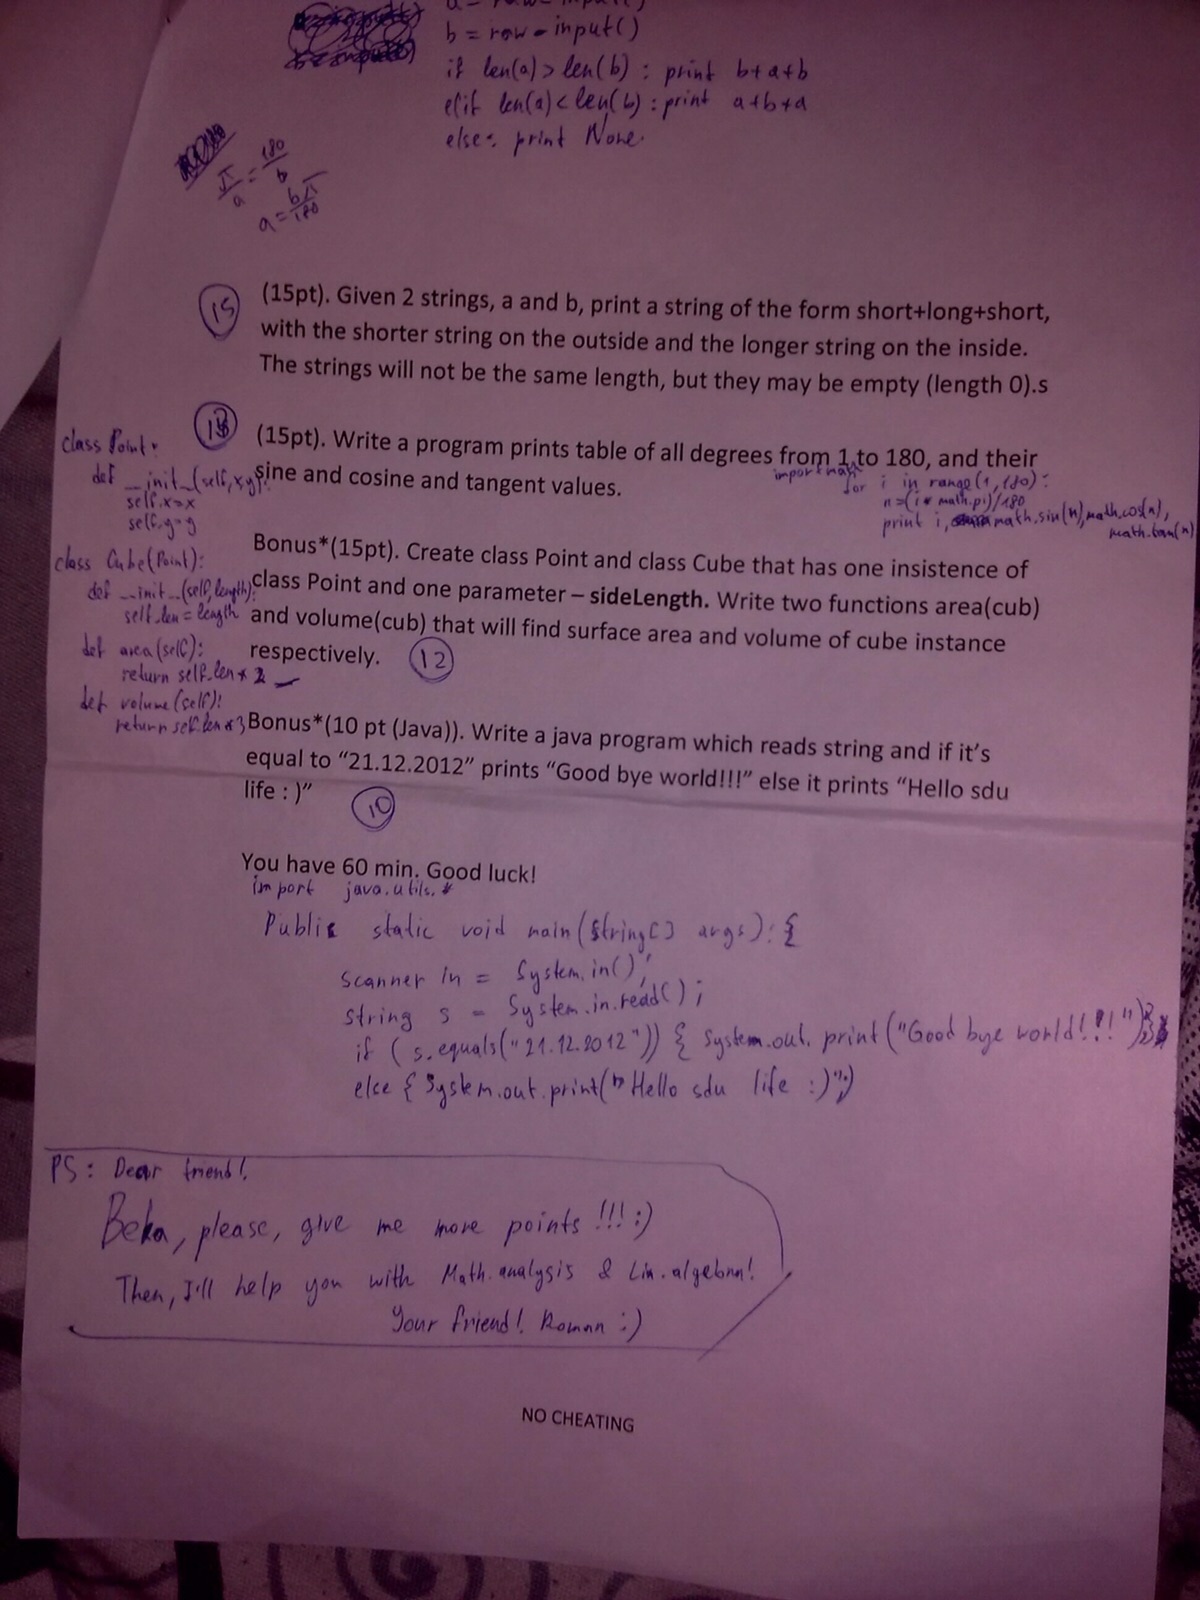 b = row-input()
if len(a) > len(b) : print b+a+b
elif len(a) < len(b) : print a+b+a
else: print None.
π/a = 180/b
a = bπ/180
15
(15pt). Given 2 strings, a and b, print a string of the form short+long+short,
with the shorter string on the outside and the longer string on the inside.
The strings will not be the same length, but they may be empty (length 0).s
(15pt). Write a program prints table of all degrees from 1 to 180, and their
sine and cosine and tangent values.
import math
for i in range(1,180):
n=(i* math.pi)/180
print i, math.sin(n), math.cos(n),
math.tan(n)
class Point:
def __init__(self,x,y):
self.x=x
self.y=y
class Cube(Point):
def __init__(self,length):
self.len=length
def area(self):
return self.len*2
def volume(self):
return self.len*3
Bonus*(15pt). Create class Point and class Cube that has one insistence of
class Point and one parameter – sideLength. Write two functions area(cub)
and volume(cub) that will find surface area and volume of cube instance
respectively.
12
Bonus*(10 pt (Java)). Write a java program which reads string and if it's
equal to “21.12.2012” prints “Good bye world!!!” else it prints “Hello sdu
life : )”
10
You have 60 min. Good luck!
import java.utils.*
Public static void main(String[] args): {
Scanner in = System.in();
String s = System.in.read();
if (s.equals("21.12.2012")) { System.out.print("Good bye world!!!")}
else { System.out.print("Hello sdu life :)");
PS: Dear friend!
Beka, please, give me more points !!! :)
Then, I'll help you with Math.analysis & Lin.algebra!
Your friend! Roman :)
NO CHEATING